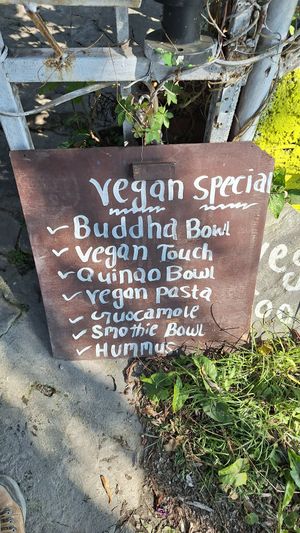 vegan special
✓ Buddha Bowl
✓ vegan Touch
✓ Quinao Bowl
✓ vegan pasta
✓ Guacamole
✓ Smothie Bowl
✓ Hummus